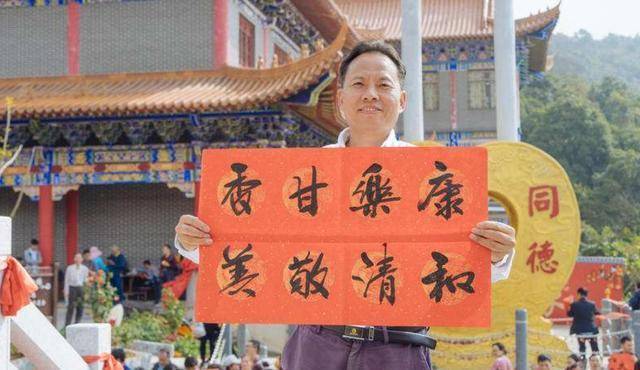 康樂甘香
和清敬美
同德